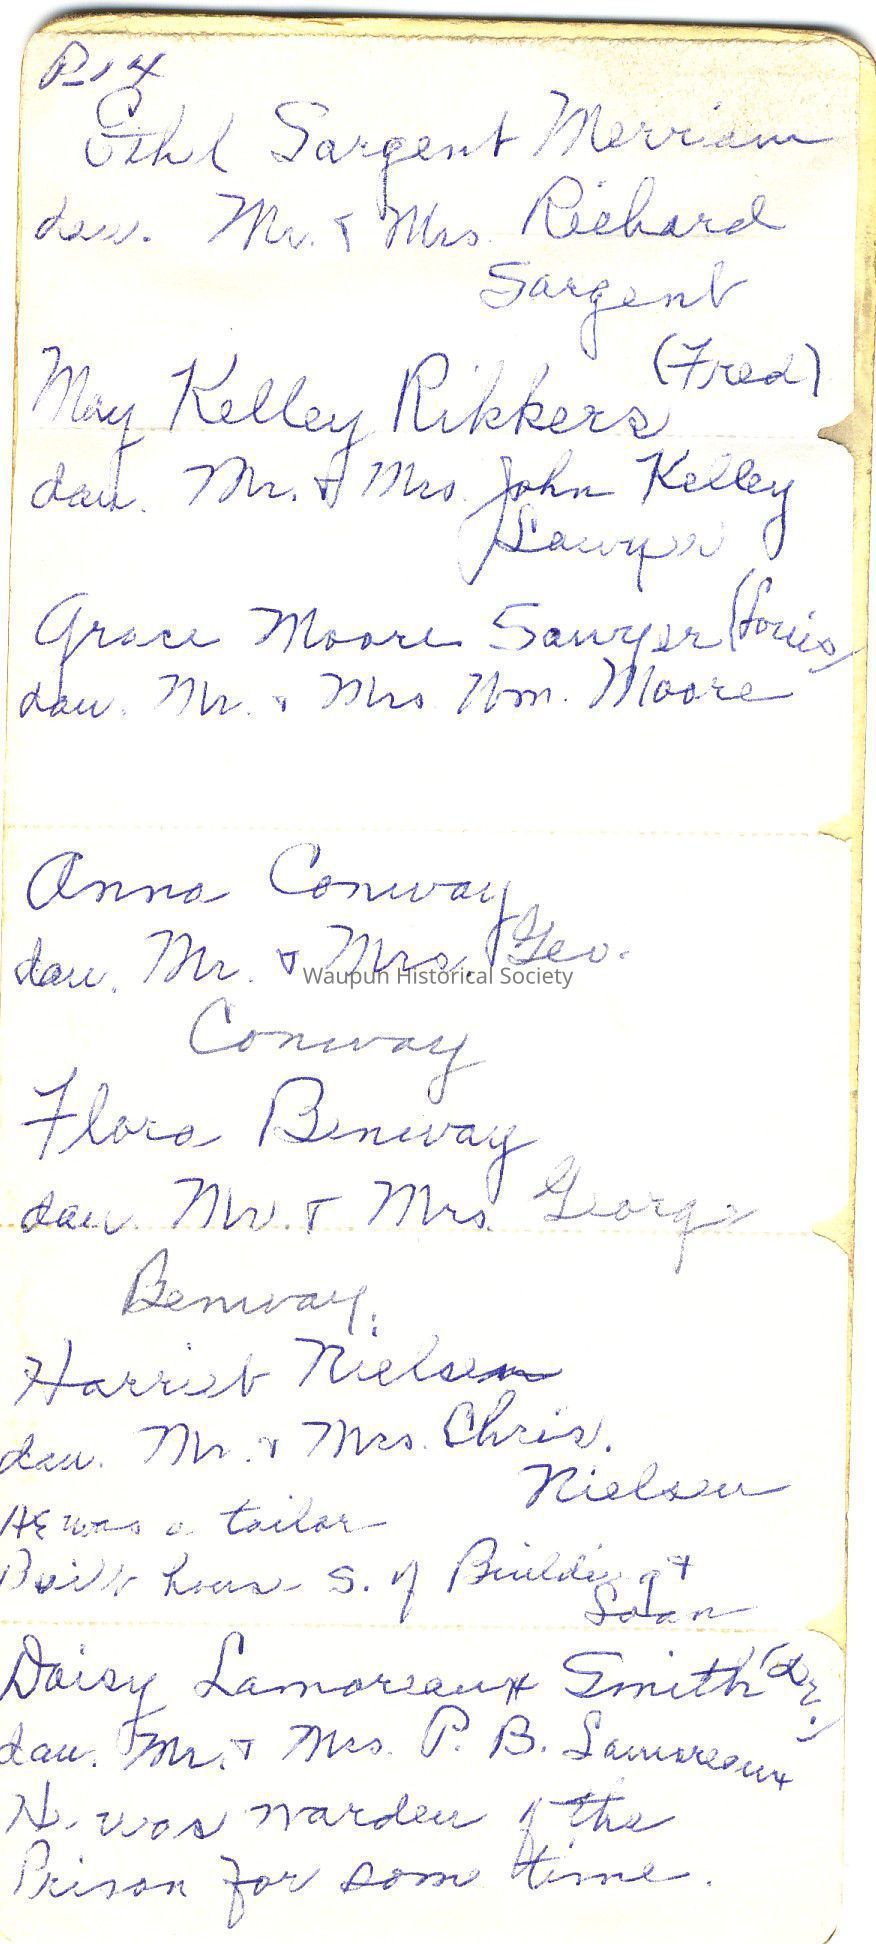 P-14
Ethl Sargent Merriam
dau. Mr. & Mrs. Richard
Sargent
(Fred)
May Kelley Rikkers
dau. Mr. & Mrs. John Kelley
Lawyer
Grace Moore Sawyer (Louis)
dau. Mr. & Mrs Wm. Moore
Anna Conway
dau. Mr. & Mrs. Geo.
Waupun Historical Society
Conway
Flora Benway
dau. Mr. & Mrs. George
Benway.
Harriet Nielsen
dau. Mr. & Mrs. Chris.
Nielsen
He was a tailor
Built house S. of Building &
Loan
Daisy Lamoreaux Smith (Dr.)
dau. Mr. & Mrs. P. B. Lamoreaux
He was warden of the
Prison for some time.